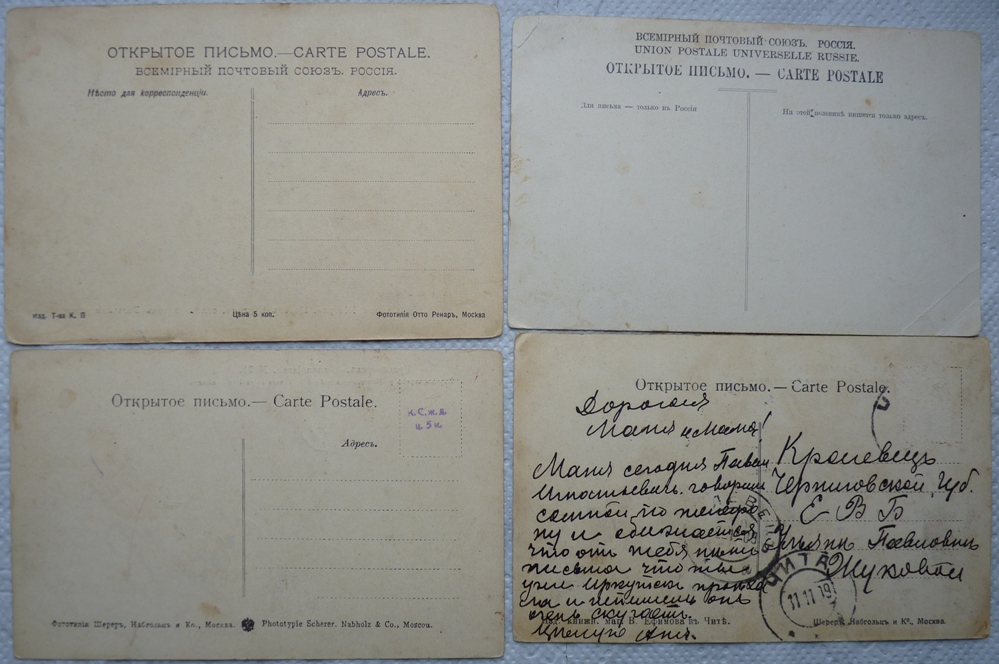 ОТКРЫТОЕ ПИСЬМО.—CARTE POSTALE.
ВСЕМІРНЫЙ ПОЧТОВЫЙ СОЮЗЪ. РОССІЯ.
Мѣсто для корреспонденціи.
Адресъ.
изд. Т-ва К. П
Цѣна 5 коп.
Фототипія Отто Ренаръ, Москва
ВСЕМІРНЫЙ ПОЧТОВЫЙ СОЮЗЪ. РОССІЯ.
UNION POSTALE UNIVERSELLE RUSSIE.
ОТКРЫТОЕ ПИСЬМО. — CARTE POSTALE
Для письма — только въ Россіи
На этой половинѣ пишется только адресъ.
Открытое письмо.— Carte Postale.
Адресъ.
ц. 5 к.
Фототипія Шереръ, Набгольцъ и Ко., Москва.
Phototypie Scherer, Nabholz & Co., Moscou.
Открытое письмо. — Carte Postale.
Дорогая
Маня и Мама!
Маня сегодня Павел
Игнатьевич. говорил
со мной по телефо
ну и обижается
что от тебя
письма что
уже Иркутск
очень скучает
Целую Аня
Кролевецъ
Черниговской Губ.
Е В Б
Павловне
Жуковой
ЧИТА
11 11
Изд. книжн. маг. В. Ефимова въ Читѣ.
Шереръ, Набгольцъ и Ко., Москва.